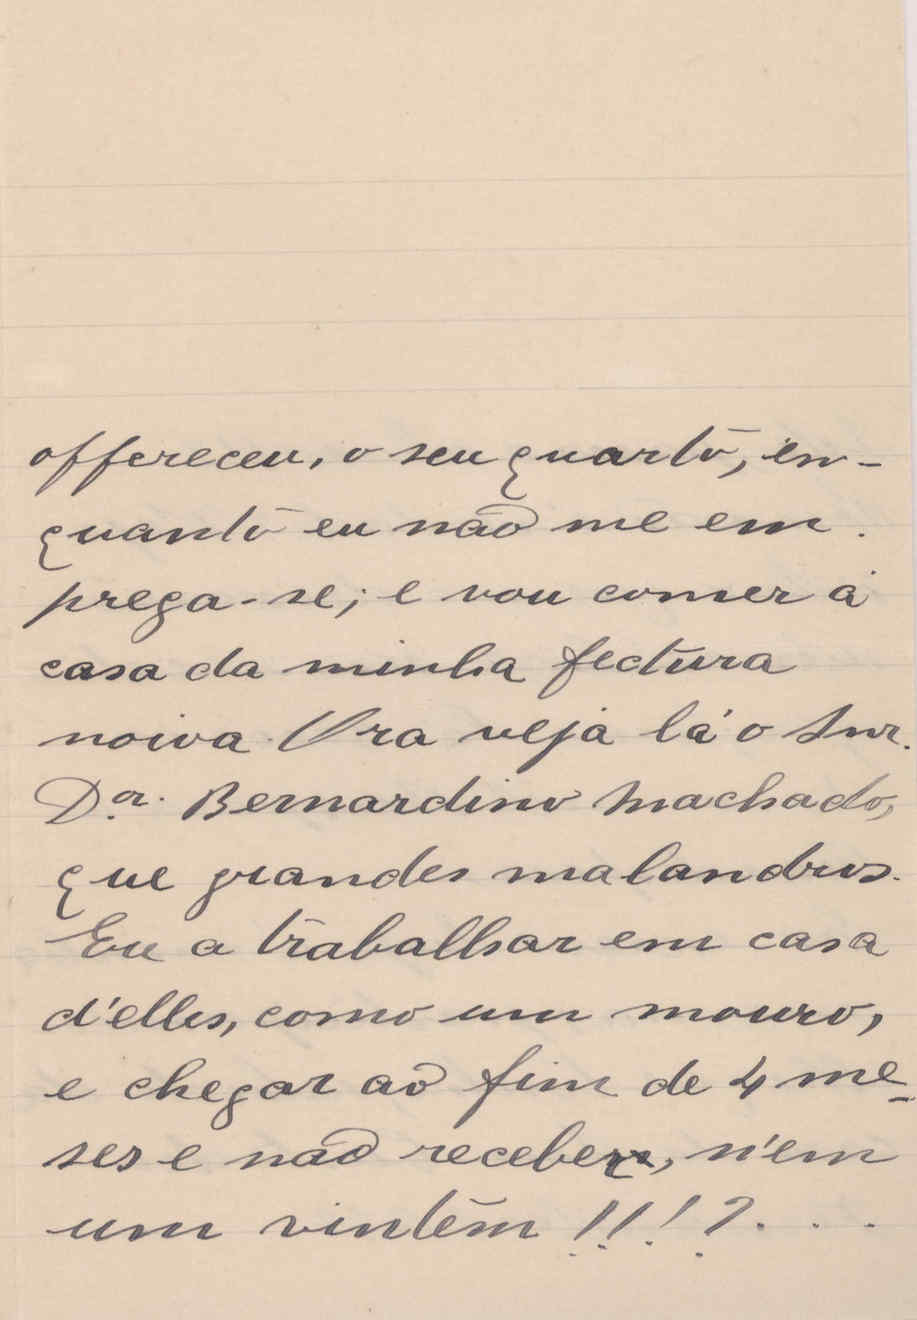 offereceu, o seu quarto, en-
quanto eu não me em.
prega-se; e vou comer á
casa da minha fectura
noiva. Ora veja lá o Snr.
Dor. Bernardino Machado,
que grandes malandros.
Eu a trabalhar em casa
d'elles, como um mouro,
e chegar ao fim de 4 me-
ses e não receber, n'em
um vintêm !!!?...